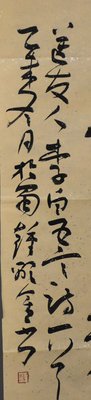 送友人李白五言诗一首
乙未冬月於蜀書